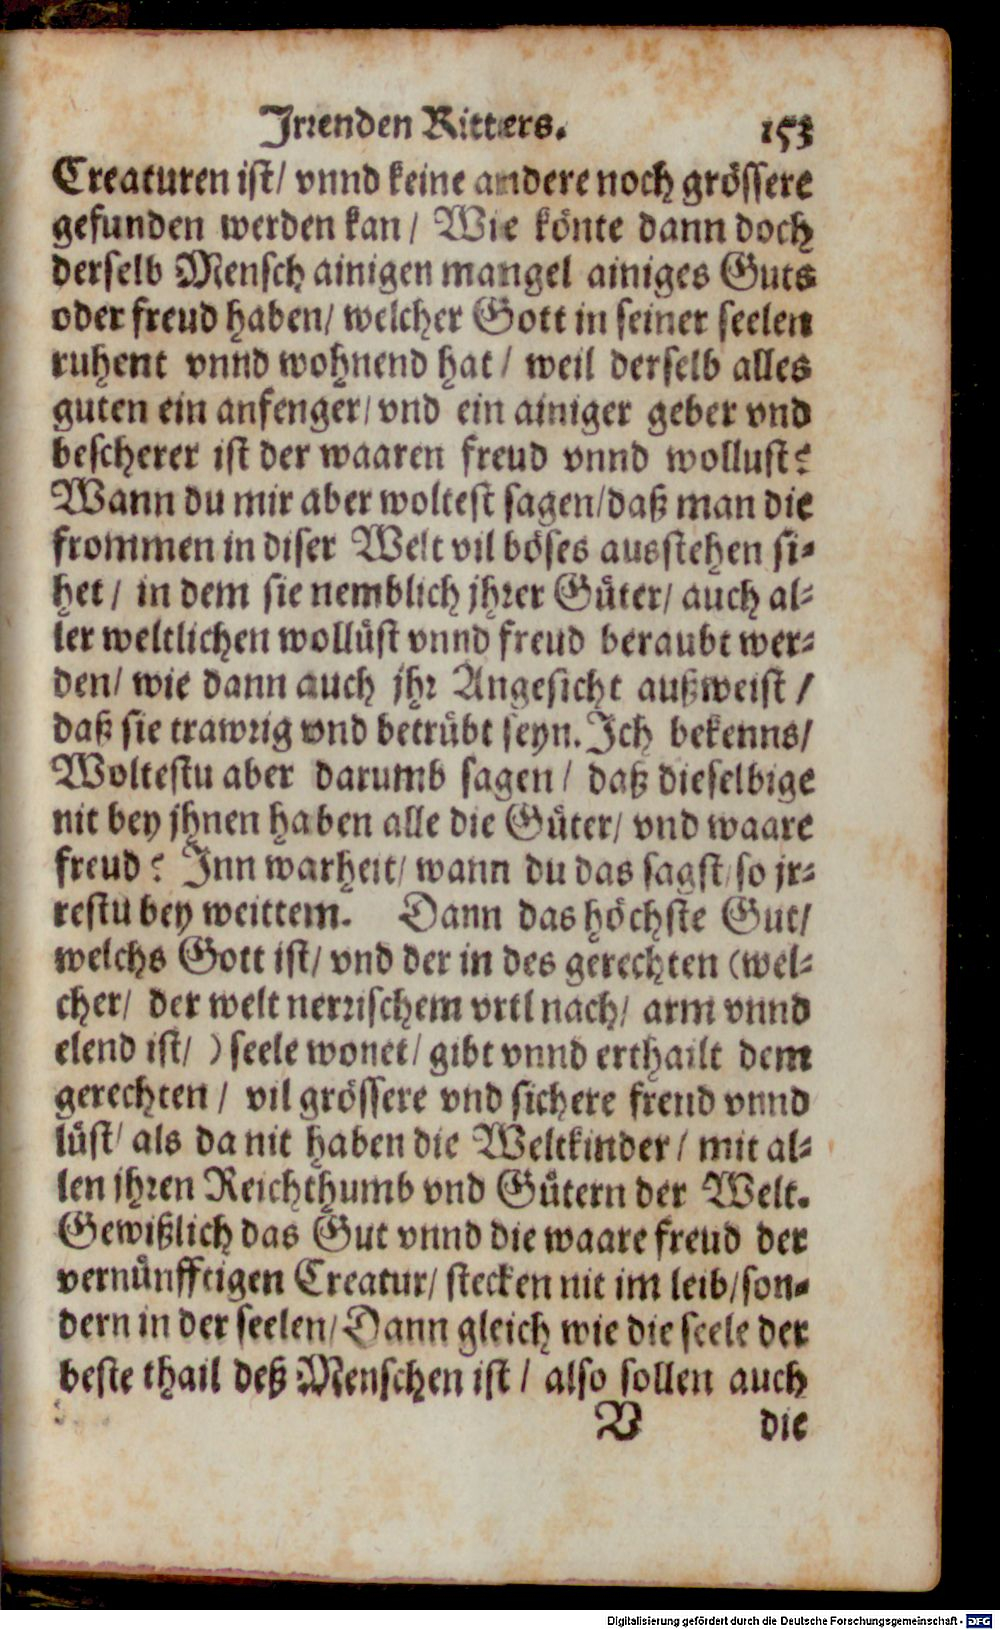 Irrenden Ritters. 153
Creaturen ist/ vnnd keine andere noch grössere
gefunden werden kan/ Wie könte dann doch
derselb Mensch ainigen mangel ainiges Guts
oder freud haben/ welcher Gott in seiner seelen
ruhent vnnd wohnend hat/ weil derselb alles
guten ein anfenger/ vnd ein ainiger geber vnd
bescherer ist der waaren freud vnnd wollust?
Wann du mir aber woltest sagen/ daß man die
frommen in diser Welt vil böses ausstehen si-
het/ in dem sie nemblich jhrer Güter/ auch al-
ler weltlichen wollüst vnnd freud beraubt wer-
den/ wie dann auch jhr Angesicht außweist/
daß sie trawrig vnd betrübt seyn. Ich bekenns/
Woltestu aber darumb sagen/ daß dieselbige
nit bey jhnen haben alle die Güter/ vnd waare
freud? Inn warheit/ wann du das sagst/ so jr-
restu bey weittem. Dann das höchste Gut/
welchs Gott ist/ vnd der in des gerechten (wel-
cher/ der welt nerrischem vrtl nach/ arm vnnd
elend ist/) seele wonet/ gibt vnnd erthailt dem
gerechten/ vil grössere vnd sichere freud vnnd
lüst/ als da nit haben die Weltkinder/ mit al-
len jhren Reichthumb vnd Gütern der Welt.
Gewißlich das Gut vnnd die waare freud der
vernünfftigen Creatur/ stecken nit im leib/ son-
dern in der seelen/ Dann gleich wie die seele der
beste thail deß Menschen ist/ also sollen auch
V die
Digitalisierung gefördert durch die Deutsche Forschungsgemeinschaft - DFG